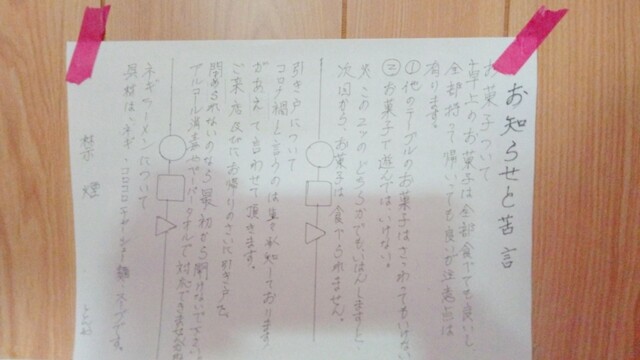 お知らせと苦言
お菓子ついて
卓上のお菓子は全部食べても良いし、
全部持って帰いっても良いが注意点は
有ります。
①他のテーブルのお菓子はさわってもいけない
②お菓子で遊んではいけない。
※この二ツのどちらかでもいはんしますと、
次回から、お菓子は食べられません。
引き戸について
コロナ禍と言うのは重々承知しております
があえて言わせて頂きます。
ご来店及びにお帰りのさいに引き戸を、
閉められないのなら最初から開けないで下さい。
アルコール消毒やペーパータオルで対応できませ
ネギラーメンについて
具材は、ネギ・コロコロチャーシュー・麺・スープです。
禁煙